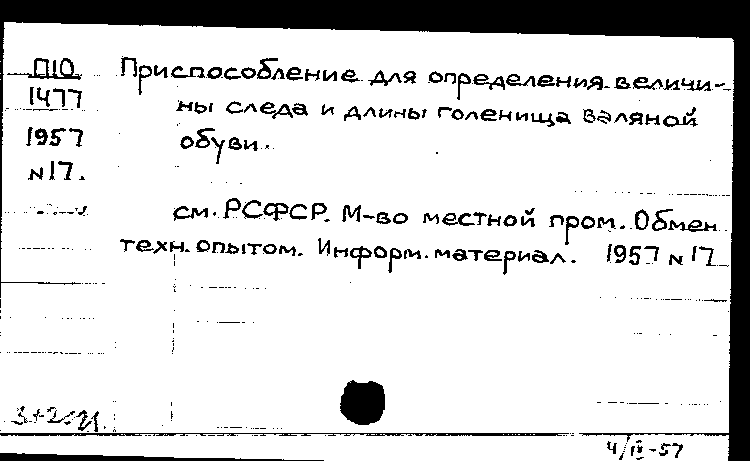 П10
1477
1957
N17.
Приспособление для определения величи-
ны следа и длины голенища валяной
обуви.
см. РСФСР. М-во местной пром. Обмен
техн. опытом. Информ. материал. 1957 N17
4/IX-57